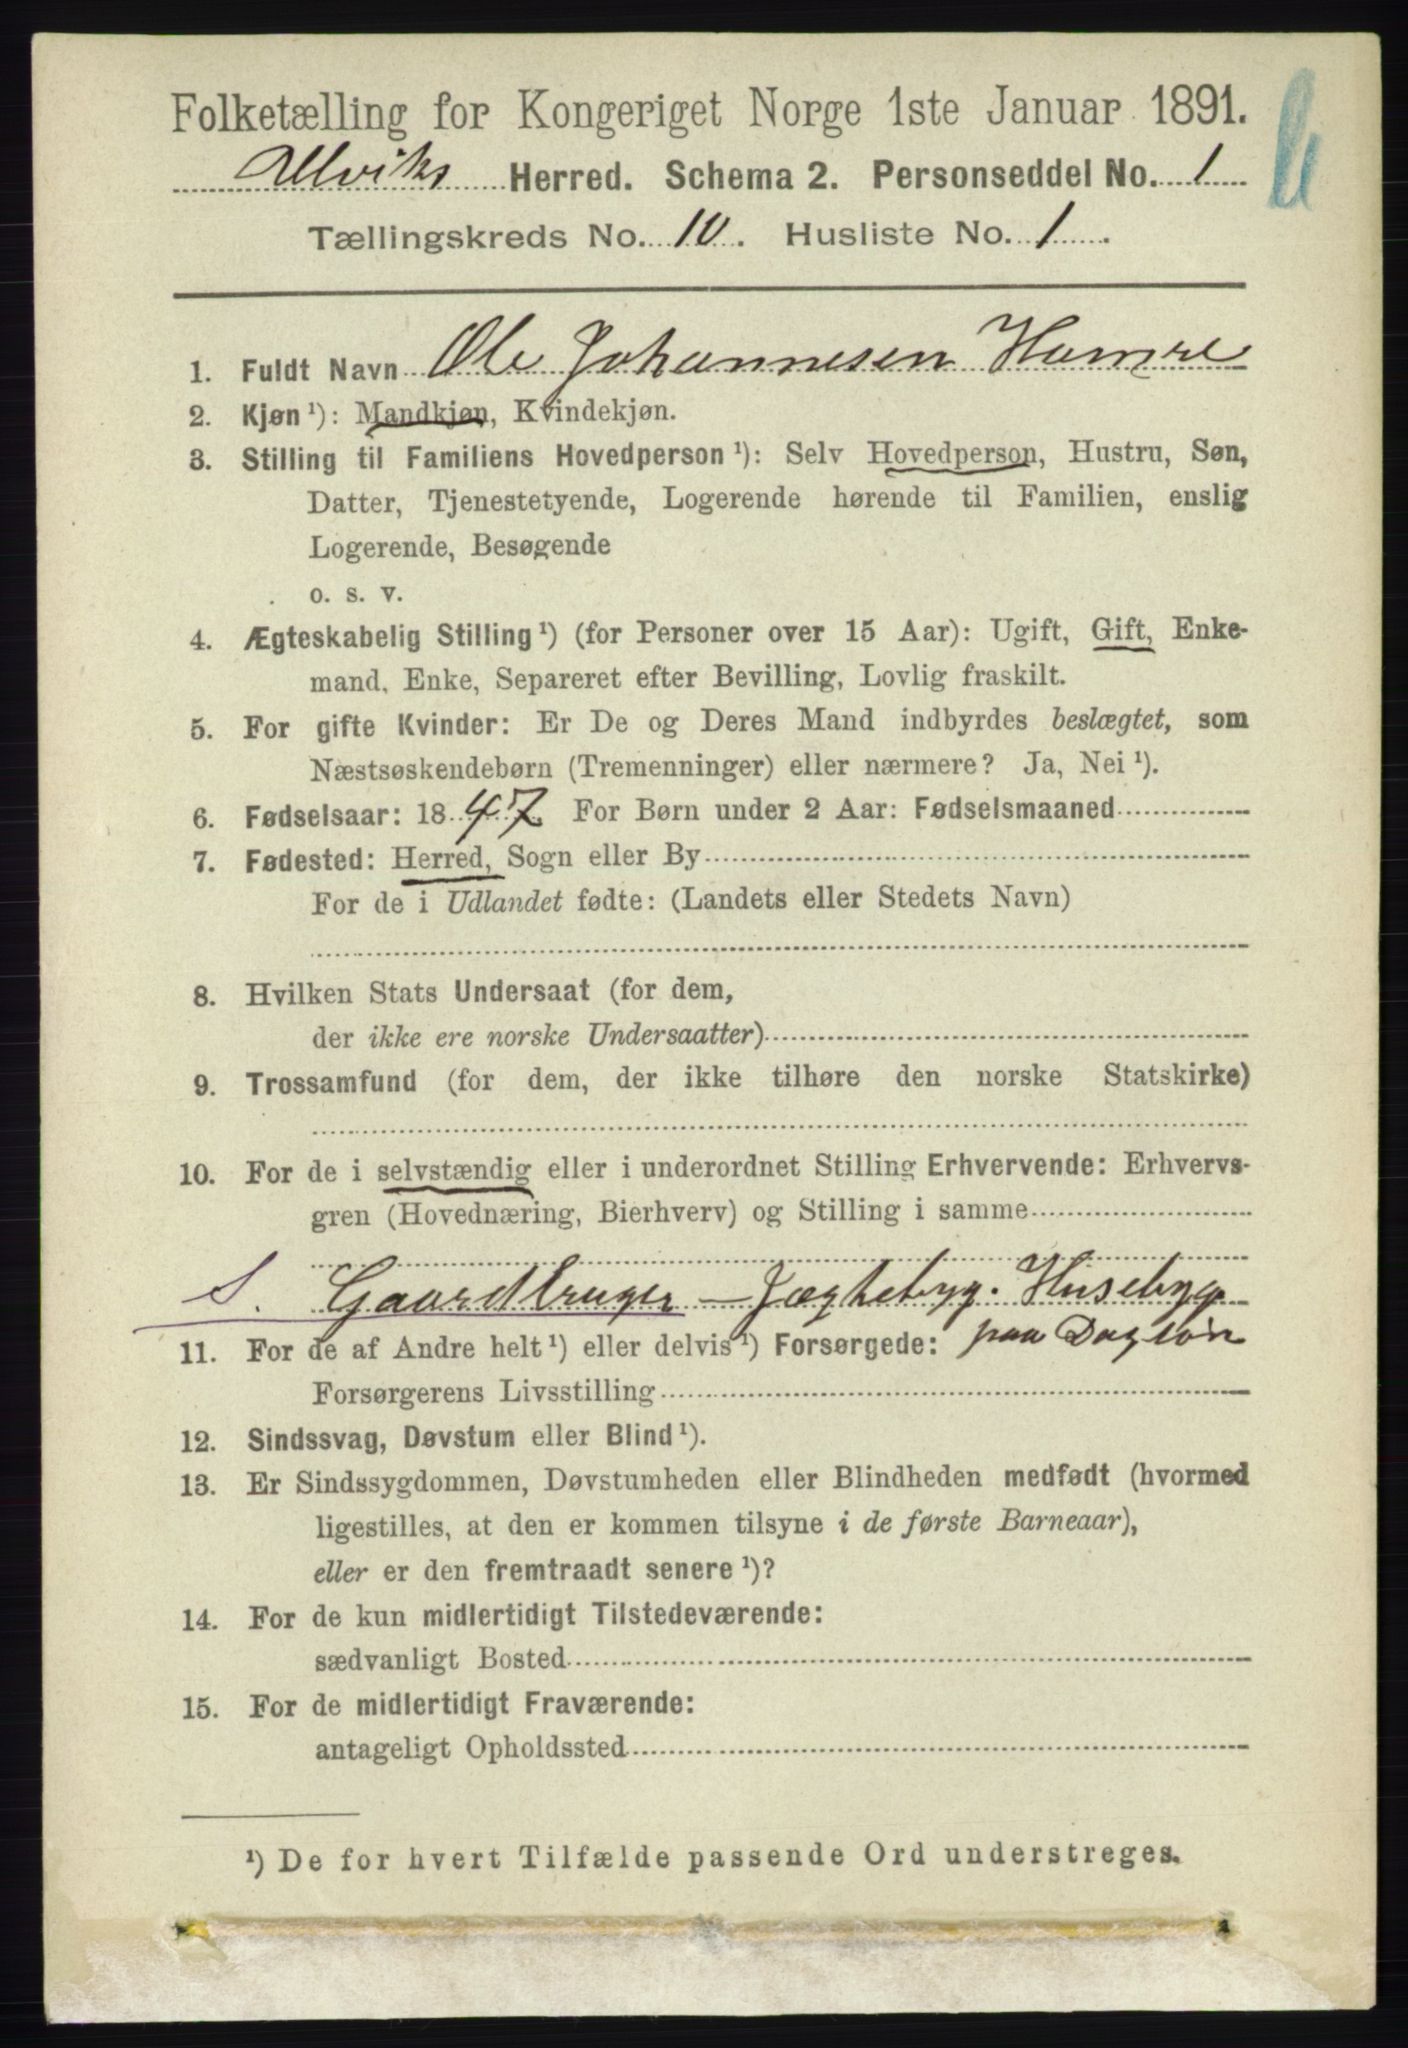 Folketælling for Kongeriget Norge 1ste Januar 1891.
Ulviks Herred. Schema 2. Personseddel No. 1
Tællingskreds No. 10. Husliste No. 1.
1. Fuldt Navn Ole Johannesen Hamre
2. Kjøn ¹): Mandkjøn, Kvindekjøn.
3. Stilling til Familiens Hovedperson ¹): Selv Hovedperson, Hustru, Søn,
Datter, Tjenestetyende, Logerende hørende til Familien, enslig
Logerende, Besøgende
o. s. v.
4. Ægteskabelig Stilling ¹) (for Personer over 15 Aar): Ugift, Gift, Enke-
mand, Enke, Separeret efter Bevilling, Lovlig fraskilt.
5. For gifte Kvinder: Er De og Deres Mand indbyrdes beslægtet, som
Næstsøskendebørn (Tremenninger) eller nærmere? Ja, Nei ¹).
6. Fødselsaar: 1847. For Børn under 2 Aar: Fødselsmaaned
7. Fødested: Herred, Sogn eller By
For de i Udlandet fødte: (Landets eller Stedets Navn)
8. Hvilken Stats Undersaat (for dem,
der ikke ere norske Undersaatter)
9. Trossamfund (for dem, der ikke tilhøre den norske Statskirke)
10. For de i selvstændig eller i underordnet Stilling Erhvervende: Erhvervs-
gren (Hovednæring, Bierhverv) og Stilling i samme
S. Gaardbruger – Jægtebyg. Husebyg
paa Dagløn
11. For de af Andre helt ¹) eller delvis ¹) Forsørgede:
Forsørgerens Livsstilling
12. Sindssvag, Døvstum eller Blind ¹).
13. Er Sindssygdommen, Døvstumheden eller Blindheden medfødt (hvormed
ligestilles, at den er kommen tilsyne i de første Barneaar),
eller er den fremtraadt senere ¹)?
14. For de kun midlertidigt Tilstedeværende:
sædvanligt Bosted
15. For de midlertidigt Fraværende:
antageligt Opholdssted
¹) De for hvert Tilfælde passende Ord understreges.